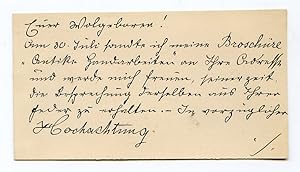 Euer Wolgeboren!
Am 30. Juli sandte ich meine Broschüre
„Antike Handarbeiten" an Ihre Adresse
und werde mich freuen, seinerzeit
die Besprechung derselben aus Ihrer
Feder zu erhalten. – In vorzüglicher
Hochachtung.
./.